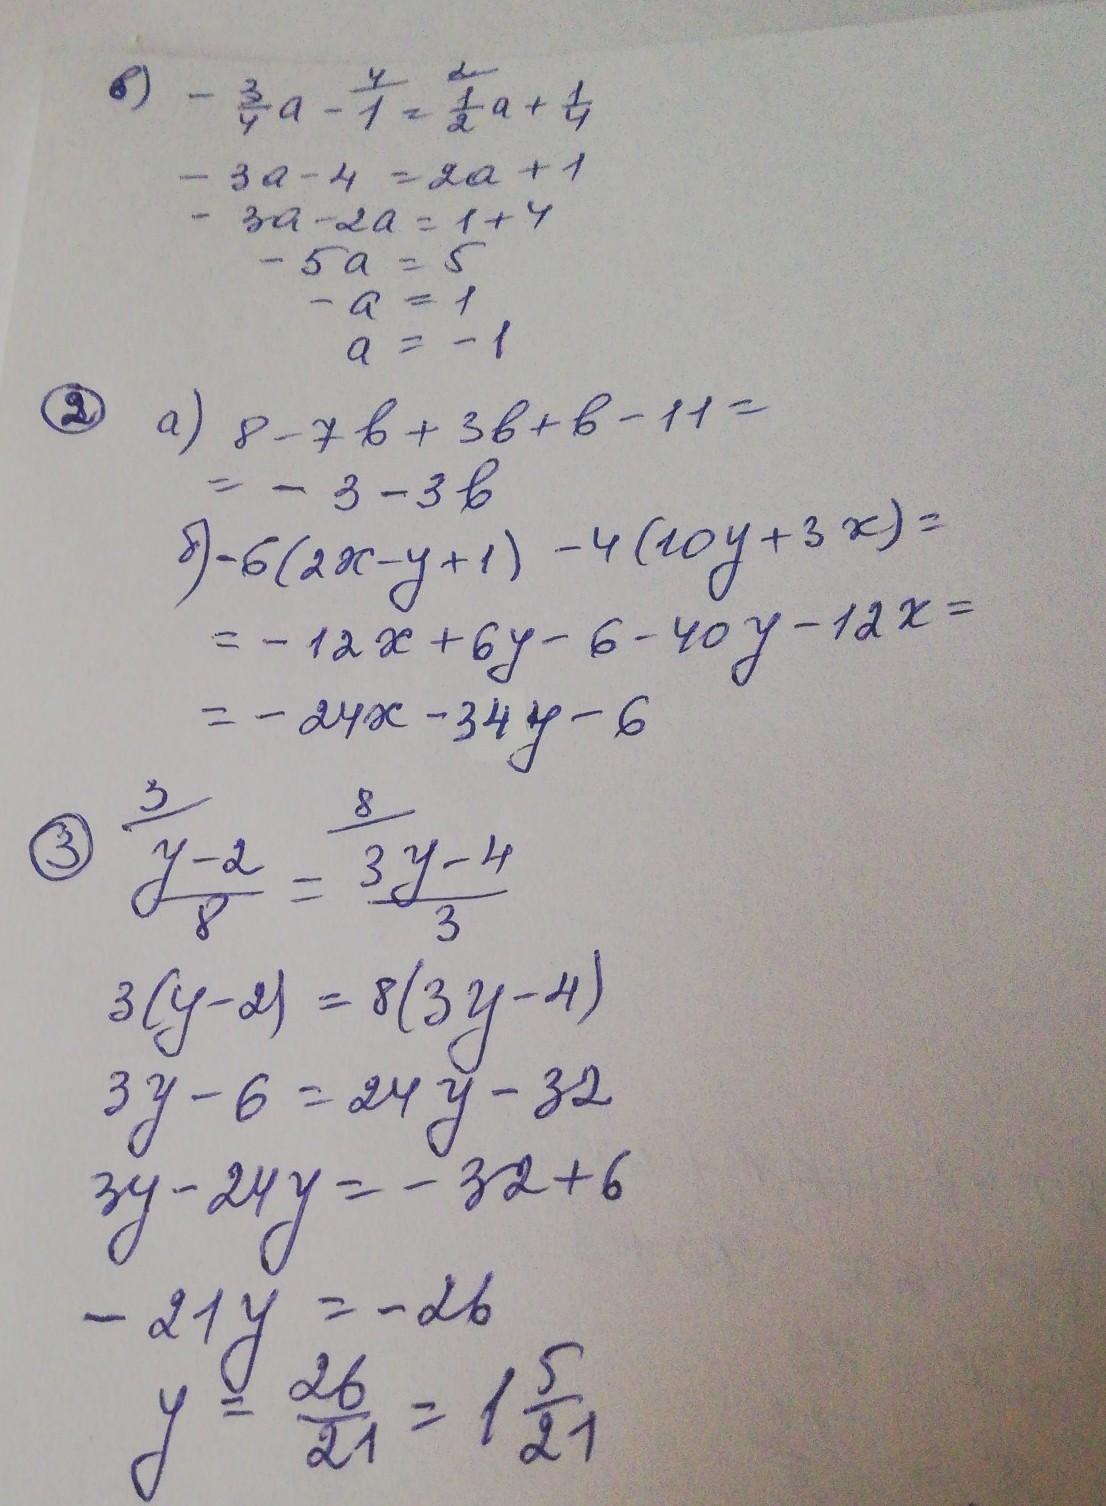 в) - 3/4 a - 4/ 1 = 2/ 1/2 a + 1/4
- 3a - 4 = 2a + 1
- 3a - 2a = 1 + 4
- 5a = 5
- a = 1
a = - 1
② а) 8 - 7b + 3b + b - 11 =
= - 3 - 3b
б) -6(2x - y + 1) - 4(10y + 3x) =
= - 12x + 6y - 6 - 40y - 12x =
= - 24x - 34y - 6
3 8
③ (y - 2)/8 = (3y - 4)/3
3(y - 2) = 8(3y - 4)
3y - 6 = 24y - 32
3y - 24y = - 32 + 6
- 21y = - 26
y = 26/21 = 1 5/21